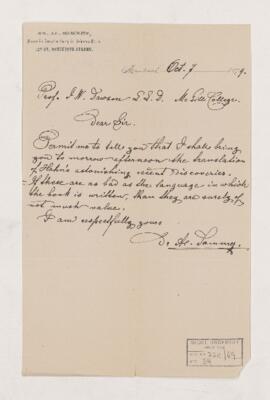 Montreal Oct. 7 79.
Prof. J. W. Dawson L L. D. McGill College.
Dear Sir.
Permit me to tell you that I shall bring
you to morrow afternoon the translation
of Hahn's astonishing recent Discoveries.
If these are as bad as the language in which
the book is written, than they are surely of
not much value.
I am respectfully yours